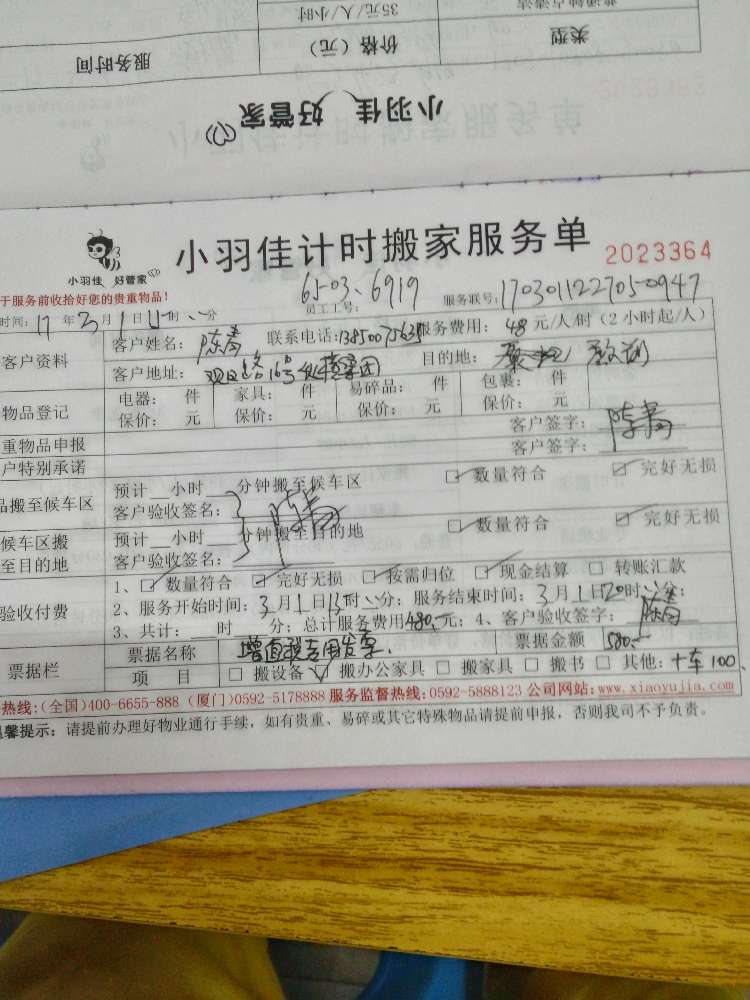 普通钟点清洁
35元/人/小时
类型
价格（元）
服务时间
小羽佳 好管家
小羽佳 好管家
小羽佳计时搬家服务单
2023364
于服务前收拾好您的贵重物品！
65-03、6919
员工工号：
服务联号：170301122705-0947
时间：17年3月1日 时 分
客户资料
客户姓名：陈青 联系电话：13850075635 服务费用：48元/人/时（2小时起/人）
客户地址：观日路16号 目的地：
物品登记
电器： 件 家具： 件 易碎品： 件 包裹： 件
保价： 元 保价： 元 保价： 元 保价： 元
重物品申报
客户签字：陈青
户特别承诺
客户签字：
品搬至候车区
预计__小时__分钟搬至候车区 数量符合 完好无损
客户验收签名：陈青
候车区搬至目的地
预计__小时__分钟搬至目的地 数量符合 完好无损
客户验收签名：
验收付费
1、数量符合 完好无损 按需归位 现金结算 转账汇款
2、服务开始时间：3月1日15时 分；服务结束时间：3月1日 时 分；
3、共计：__时__分；总计服务费用480元；4、客户验收签字：陈青
票据栏
票据名称 增值税专用发票. 票据金额 580.-
项 目 搬设备 搬办公家具 搬家具 搬书 其他：+车100、
热线：(全国)400-6655-888 (厦门)0592-5178888 服务监督热线：0592-5888123 公司网站：www.xiaoyujia.com
温馨提示：请提前办理好物业通行手续，如有贵重、易碎或其它特殊物品请提前申报，否则我司不予负责。